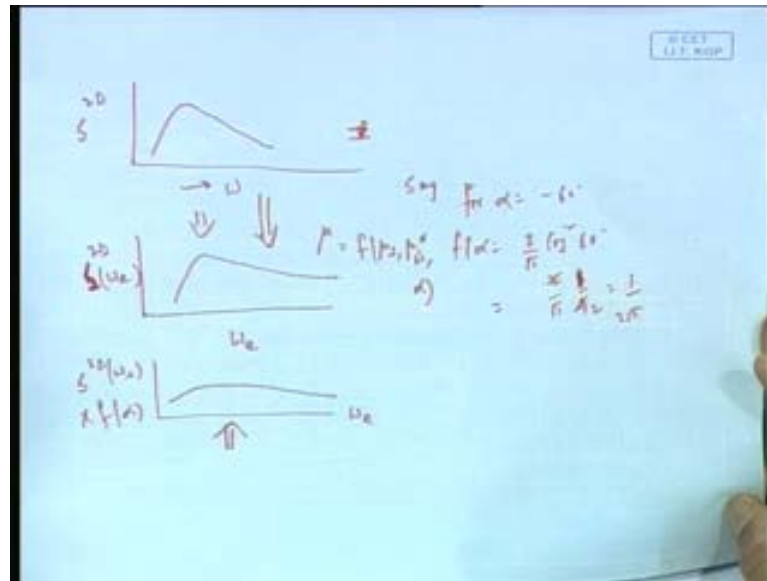 © CET
I.I.T. KGP
2D
S
→ ω
say for α = -60°
2D
S(ωe)
μ = f(μ2, μβ,
α)
f(α = 2/π cos² 60°
= 1/2π
ωe
S2D(ωe)
x f(α)
ωe